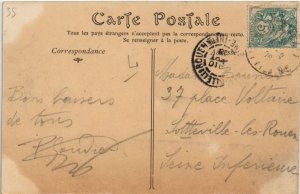 35
Carte Postale
Tous les pays étrangers n'acceptent pas la correspondance au recto.
Se renseigner à la poste.
Correspondance
Adresse
4
Madame
37 place Voltaire
Sotteville-les-Rouen
Seine Inférieure
Bons baisers
de tous